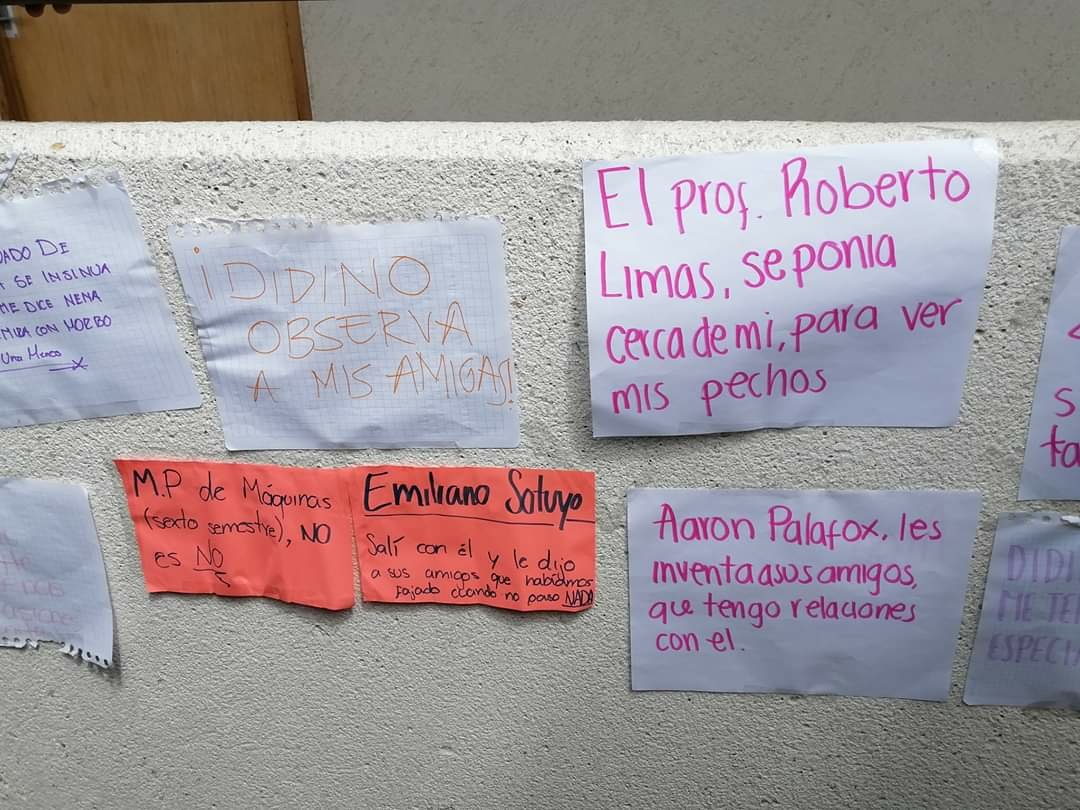 DE
SE INSINUA
ME DICE NENA
CON MORBO
¡DIDINO
OBSERVA
A MIS AMIGAS!
El prof. Roberto
Limas, se ponia
cerca de mi, para ver
mis pechos
M.P de Máquinas
(sexto semestre), NO
es NO
Emiliano Sotuyo
Salí con él y le dijo
a sus amigos que habíamos
fajado cuando no paso NADA
Aaron Palafox, les
inventa a sus amigos,
que tengo relaciones
con el.
DIDI
ME TE
ESPECIA